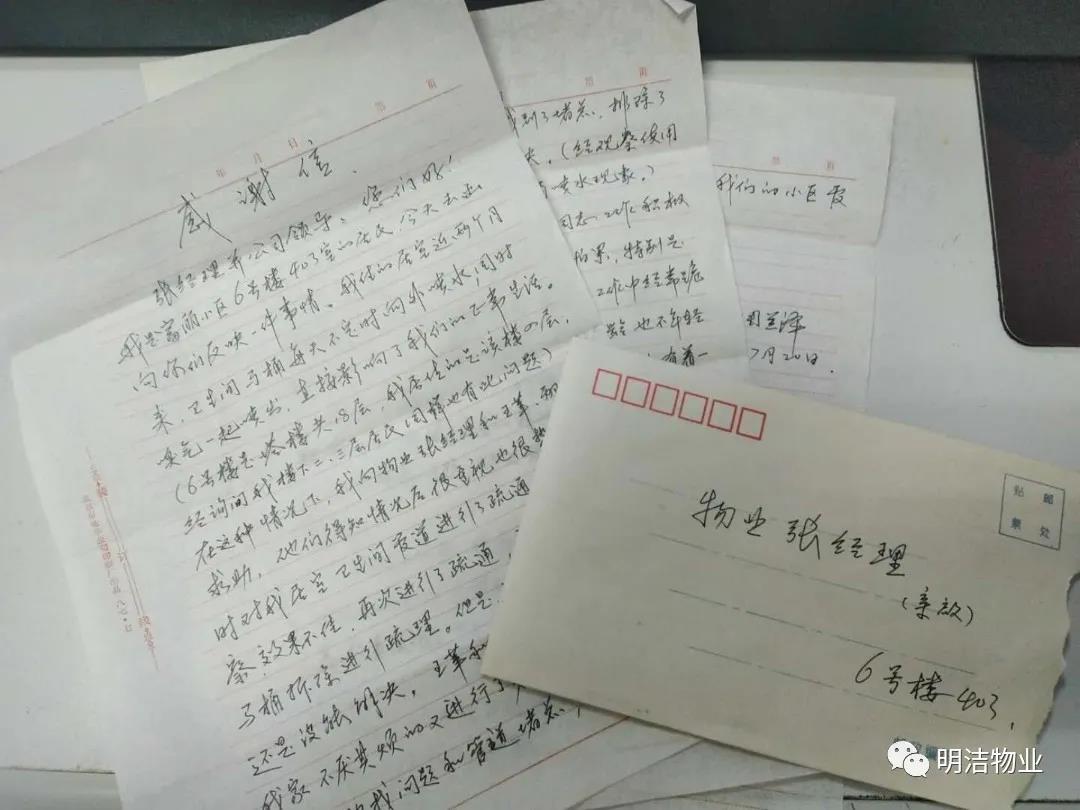 第 页
年 月 日
感谢信
张经理并公司领导：您们好！
我是富丽小区6号楼403室的居民，今天去函
向你们反映一件事情。我住的居室近两个月
来，卫生间马桶每天不定时向外喷水，同时
臭气一起喷出，直接影响了我们的正常生活。
（6号楼是塔楼共18层，我居住的是该楼4层，
经询问我楼下二、三层居民同样也有此问题）
在这种情况下，我向物业张经理和王革
求助，他们得知情况后很重视也很
时对我居室卫生间管道进行了疏通
察效果不佳，再次进行了疏通
马桶拆除进行疏理。但是
还是没能解决。王革和
我家不厌其烦的又进行了
找问题和管道堵点
第 页
到了堵点，排除了
（经观察使用
喷水现象。）
同志，工作积极
特别是
工作中经常
龄也不年轻
有着一
第 页
我们的小区
7月20日.
贴 邮
票 处
物业张经理
（亲启）
6号楼403.
明洁物业